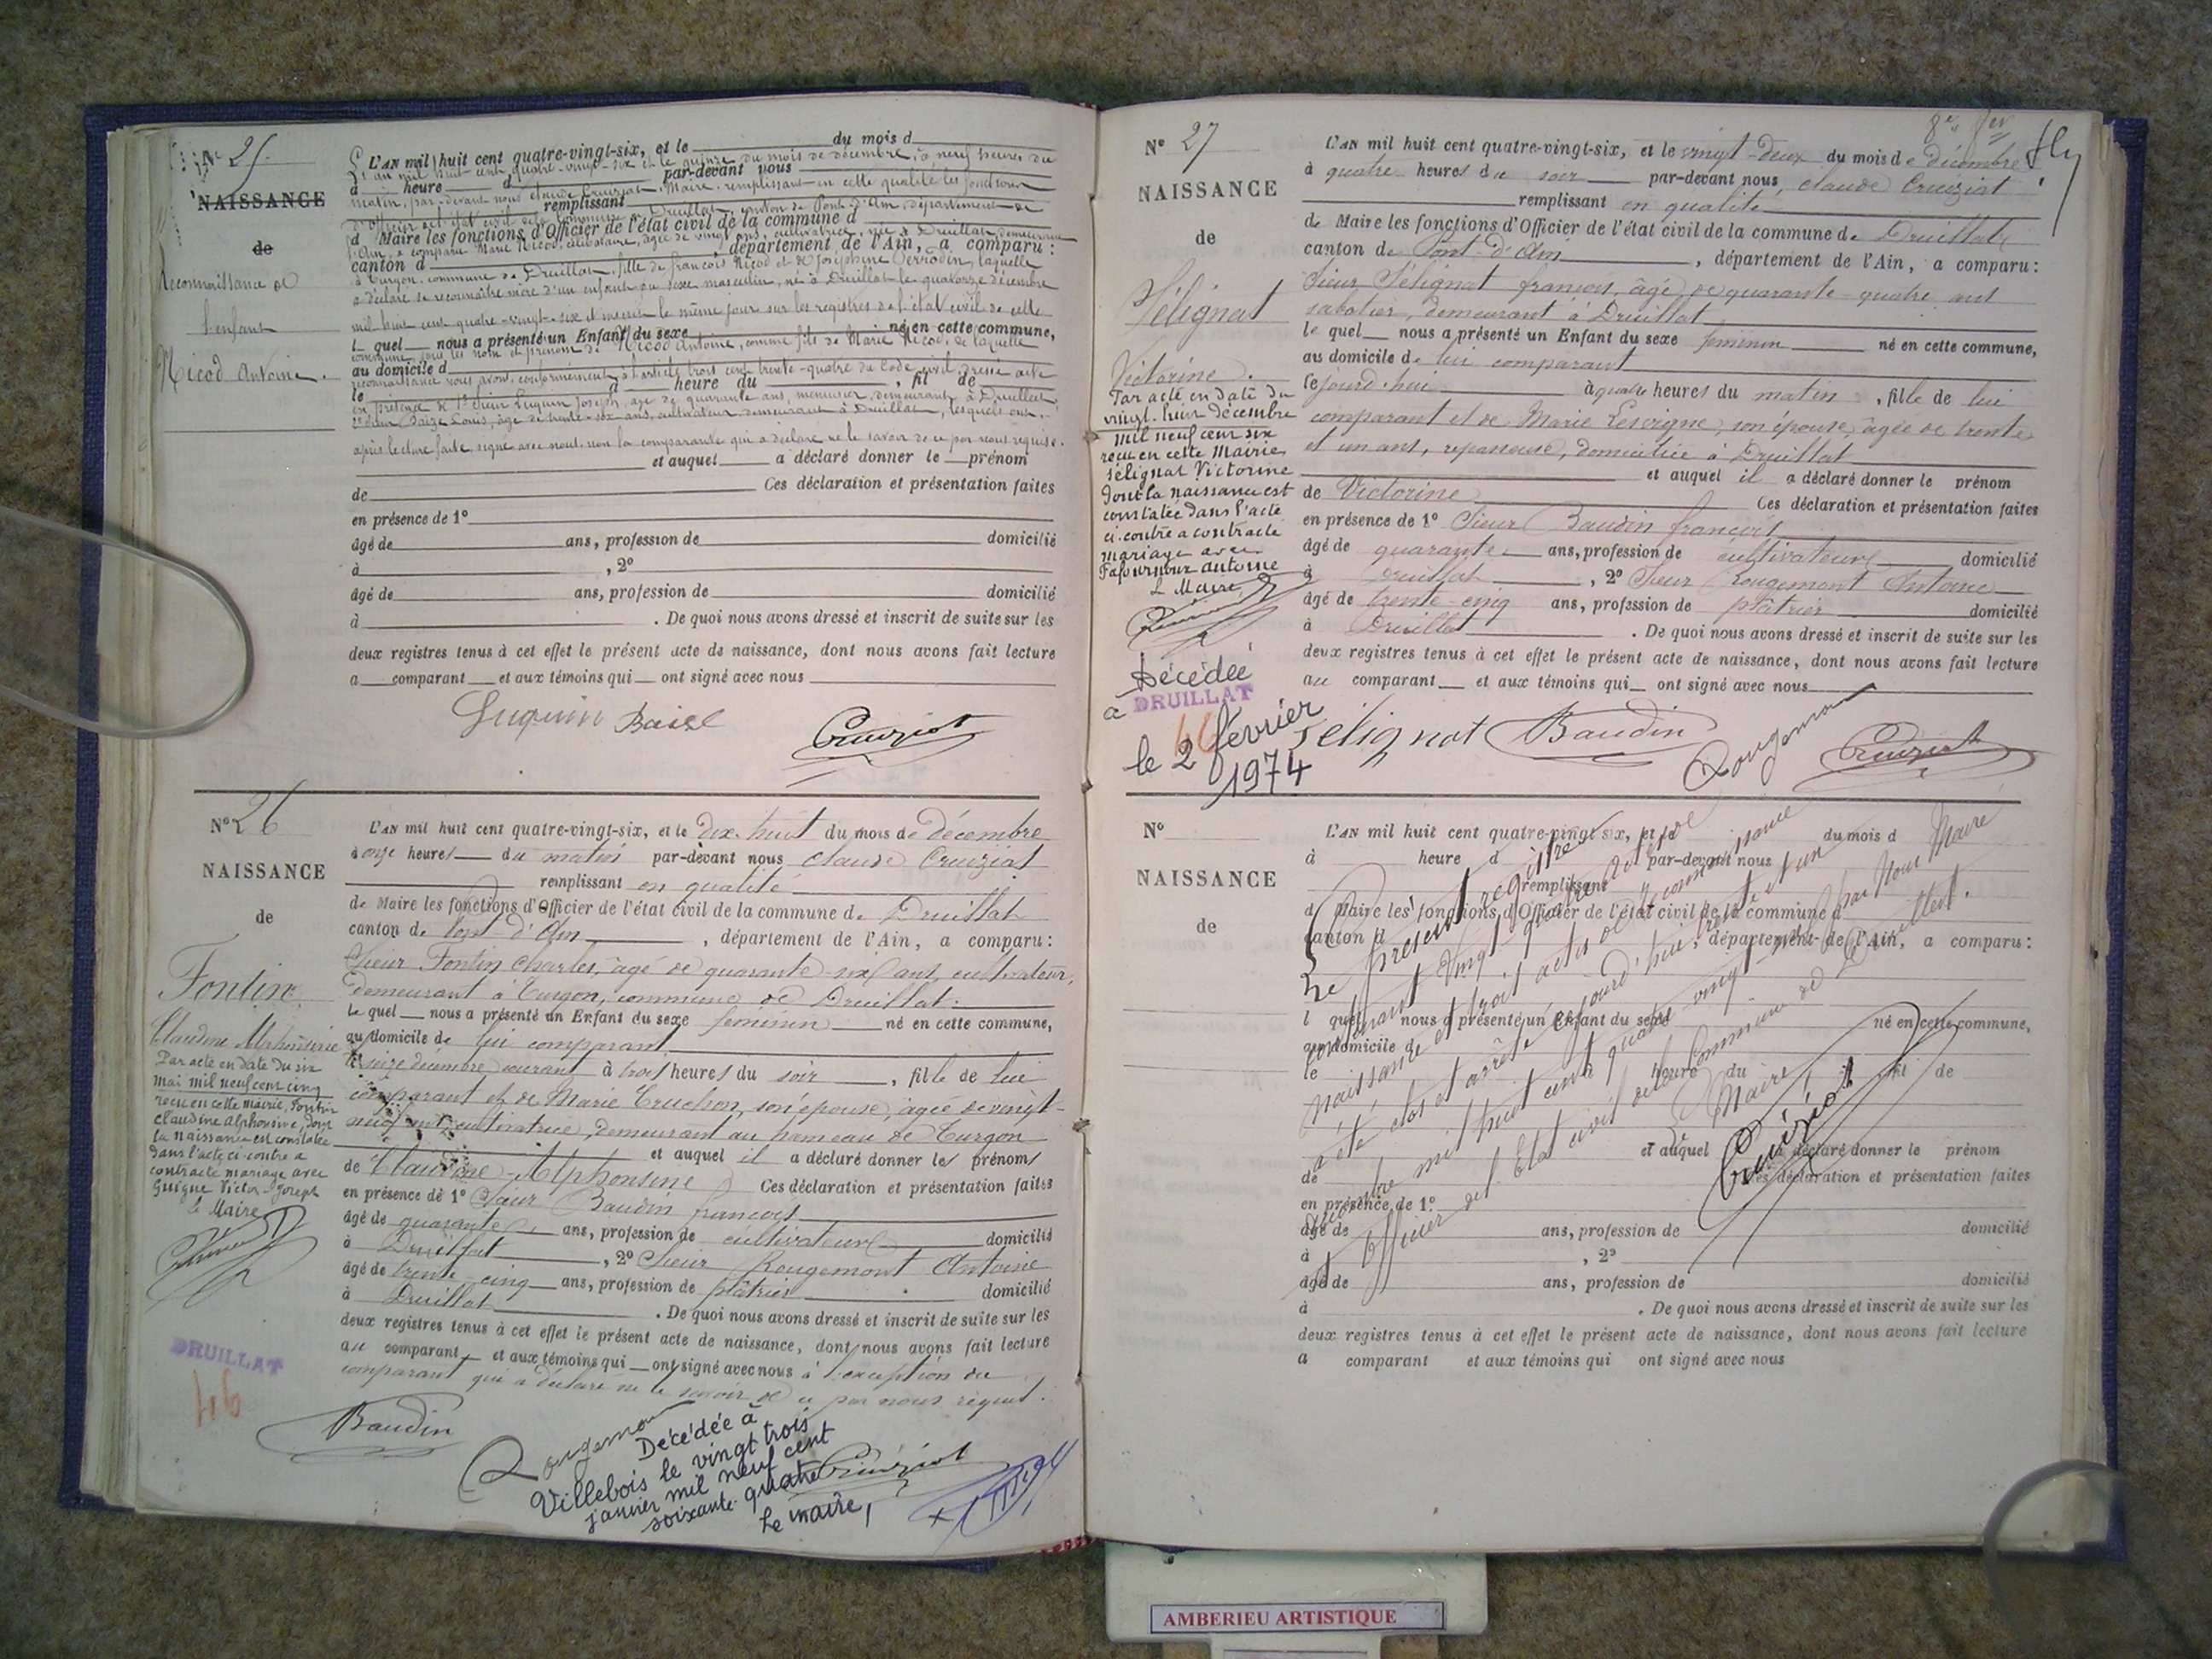 Nº 25
NAISSANCE
de
Reconnaissance de
l'enfant
Nicod Antoine.
L'AN mil huit cent quatre-vingt-six, et le du mois d
L'an mil huit cent quatre-vingt-six et le quinze du mois de décembre, à neuf heures du
à heure d par-devant nous
matin, par-devant nous Claude Cruiziat, Maire, remplissant en cette qualité les fonctions
remplissant
d'officier de l'état civil de la commune de Druillat, canton de Pont-d'Ain, département de
d Maire les fonctions d'Officier de l'état civil de la commune d
l'Ain, a comparu Marie Nicod, célibataire, âgée de vingt ans, cultivatrice, née à Druillat, demeurant
canton d , département de l'Ain, a comparu:
à Turgon, commune de Druillat, fille de françois Nicod et de Joséphine Perrodin, laquelle
a déclaré se reconnaître mère d'un enfant du sexe masculin, né à Druillat le quatorze décembre
mil huit cent quatre-vingt-six et inscrit le même jour sur les registres de l'état civil de cette
l quel nous a présenté un Enfant du sexe né en cette commune,
commune sous les nom et prénom de Nicod Antoine, comme fils de Marie Nicod, de laquelle
au domicile d
reconnaissance nous avons, conformément à l'article trois cent trente-quatre du Code civil, dressé acte
le à heure du , fil de
en présence de 1º Sieur Luquin Joseph, âgé de quarante ans, menuisier, demeurant à Druillat
2º Sieur Baize Louis, âgé de trente-six ans, cultivateur demeurant à Druillat, lesquels ont,
après lecture faite, signé avec nous, non la comparante qui a déclaré ne le savoir de ce par nous requise.
et auquel a déclaré donner le prénom
de Ces déclaration et présentation faites
en présence de 1º
âgé de ans, profession de domicilié
à , 2º
âgé de ans, profession de domicilié
à . De quoi nous avons dressé et inscrit de suite sur les
deux registres tenus à cet effet le présent acte de naissance, dont nous avons fait lecture
a comparant et aux témoins qui ont signé avec nous
Luquin Baise Cruiziat
Nº 26
NAISSANCE
de
Fontin
Claudine Alphonsine
Par acte en date du six
mai mil neuf cent cinq
reçu en cette mairie, Fontin
Claudine Alphonsine, dont
la naissance est constatée
dans l'acte ci-contre a
contracté mariage avec
Guigue Victor-Joseph
Le Maire
DRUILLAT
46
L'AN mil huit cent quatre-vingt-six, et le dix-huit du mois de décembre
à onze heures du matin par-devant nous Claude Cruiziat
remplissant en qualité
de Maire les fonctions d'Officier de l'état civil de la commune de Druillat
canton de Pont d'Ain , département de l'Ain, a comparu:
Sieur Fontin Charles, âgé de quarante-six ans, cultivateur,
demeurant à Turgon, commune de Druillat.
le quel nous a présenté un Enfant du sexe féminin né en cette commune,
au domicile de lui comparant
le seize décembre courant à trois heures du soir , fille de lui
comparant et de Marie Truchon, son épouse, âgée de vingt-
neuf ans, cultivatrice, demeurant au hameau de Turgon
et auquel il a déclaré donner les prénoms
de Claudine-Alphonsine Ces déclaration et présentation faites
en présence de 1º Sieur Baudin francois
âgé de quarante ans, profession de cultivateur domicilié
à Druillat , 2º Sieur Rougemont Antoine
âgé de trente-cinq ans, profession de plâtrier domicilié
à Druillat . De quoi nous avons dressé et inscrit de suite sur les
deux registres tenus à cet effet le présent acte de naissance, dont nous avons fait lecture
au comparant et aux témoins qui ont signé avec nous à l'exception du
comparant qui a déclaré ne le savoir de ce par nous requis.
Baudin Rougemont Cruiziat
Décédée à
Villebois le vingt trois
janvier mil neuf cent
soixante quatre
Le maire,
Nº 27
NAISSANCE
de
Sélignat
Victorine.
Par acte en date du
vingt-huit décembre
mil neuf cent six
reçu en cette Mairie
Sélignat Victorine
dont la naissance est
constatée dans l'acte
ci-contre a contracté
mariage avec
Fafournoux Antoine
L Maire,
Décédée
a DRUILLAT
46
le 2 février
1974
L'AN mil huit cent quatre-vingt-six, et le vingt-deux du mois de décembre
à quatre heures du soir par-devant nous, Claude Cruiziat
remplissant en qualité
de Maire les fonctions d'Officier de l'état civil de la commune de Druillat
canton de Pont-d'Ain , département de l'Ain, a comparu:
Sieur Sélignat francois, âgé de quarante-quatre ans
sabotier, demeurant à Druillat
le quel nous a présenté un Enfant du sexe féminin né en cette commune,
au domicile de lui comparant
le jourd'hui à quatre heures du matin , fille de lui
comparant et de Marie Lescigne, son épouse, âgée de trente
et un ans, repasseuse, domiciliée à Druillat
et auquel il a déclaré donner le prénom
de Victorine Ces déclaration et présentation faites
en présence de 1º Sieur Baudin francois
âgé de quarante ans, profession de cultivateur domicilié
à Druillat , 2º Sieur Rougemont Antoine
âgé de trente-cinq ans, profession de plâtrier domicilié
à Druillat . De quoi nous avons dressé et inscrit de suite sur les
deux registres tenus à cet effet le présent acte de naissance, dont nous avons fait lecture
au comparant et aux témoins qui ont signé avec nous
Sélignat Baudin Rougemont Cruiziat
Nº
NAISSANCE
de
L'AN mil huit cent quatre-vingt-six, et le du mois d
à heure d par-devant nous
remplissant
d Maire les fonctions d'Officier de l'état civil de la commune d
canton d , département de l'Ain, a comparu:
l quel nous a présenté un Enfant du sexe né en cette commune,
au domicile d
le heure du fil de
et auquel a déclaré donner le prénom
de Ces déclaration et présentation faites
en présence de 1º
âgé de ans, profession de domicilié
à , 2º
âgé de ans, profession de domicilié
à . De quoi nous avons dressé et inscrit de suite sur les
deux registres tenus à cet effet le présent acte de naissance, dont nous avons fait lecture
a comparant et aux témoins qui ont signé avec nous
Le présent registre
contenant vingt-quatre actes de
naissance et trois actes de reconnaissance
a été clos et arrêté cejourd'hui, trente et un
décembre mil huit cent quatre vingt-six par Nous Maire
Officier de l'Etat civil de la Commune de Druillat.
Le Maire
Cruiziat
AMBERIEU ARTISTIQUE